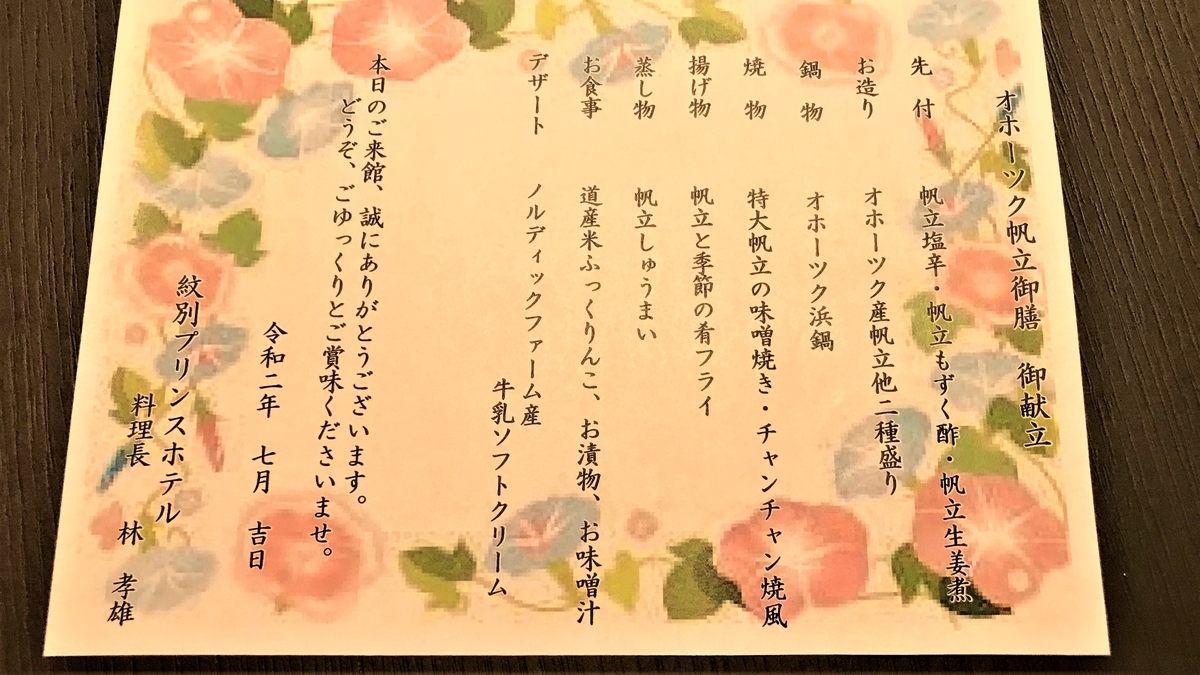 オホーツク帆立御膳　御献立
先　付　帆立塩辛・帆立もずく酢・帆立生姜煮
お造り　オホーツク産帆立他二種盛り
鍋　物　オホーツク浜鍋
焼　物　特大帆立の味噌焼き・チャンチャン焼風
揚げ物　帆立と季節の肴フライ
蒸し物　帆立しゅうまい
お食事　道産米ふっくりんこ、お漬物、お味噌汁
デザート　ノルディックファーム産
牛乳ソフトクリーム
本日のご来館、誠にありがとうございます。
どうぞ、ごゆっくりとご賞味くださいませ。
令和二年　七月　吉日
紋別プリンスホテル
料理長　林　孝雄